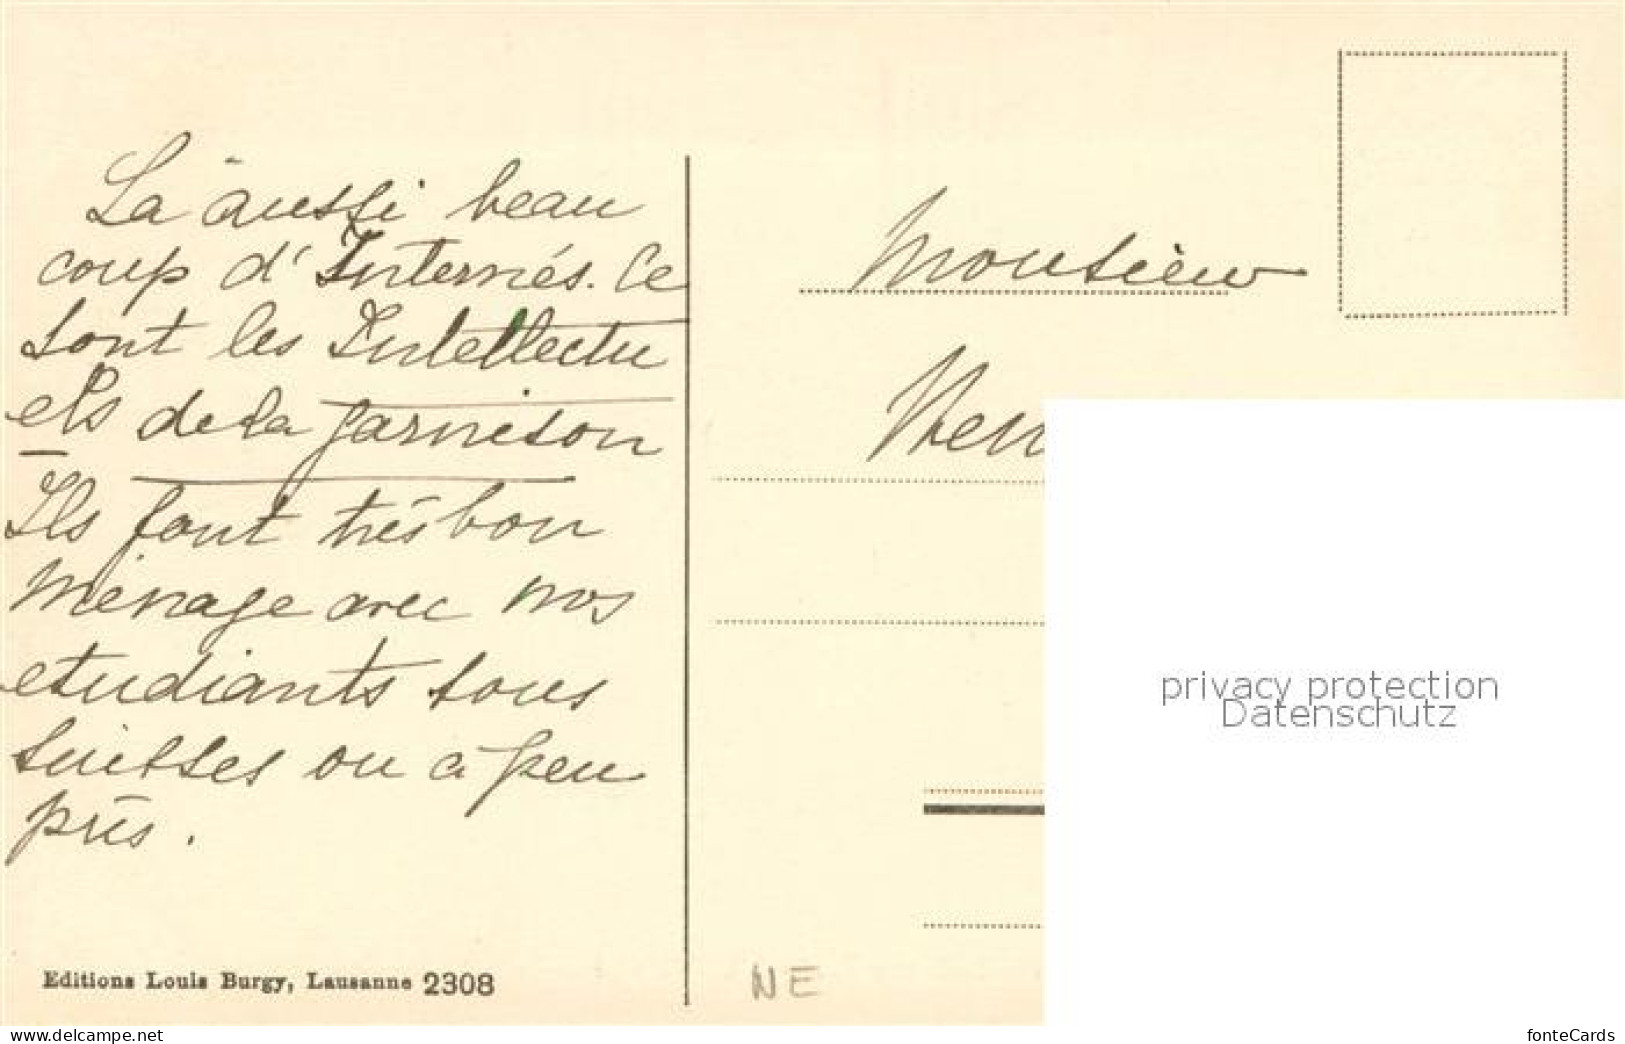 La aussi beau
coup d'Internés. Ce
sont les Intellectu
els de la garnison
Ils font très bon
ménage avec nos
etudiants tous
suisses ou à peu
près.
Editions Louis Burgy, Lausanne 2308
Monsieur
Hen
NE
privacy protection
Datenschutz
www.delcampe.net
fonteCards